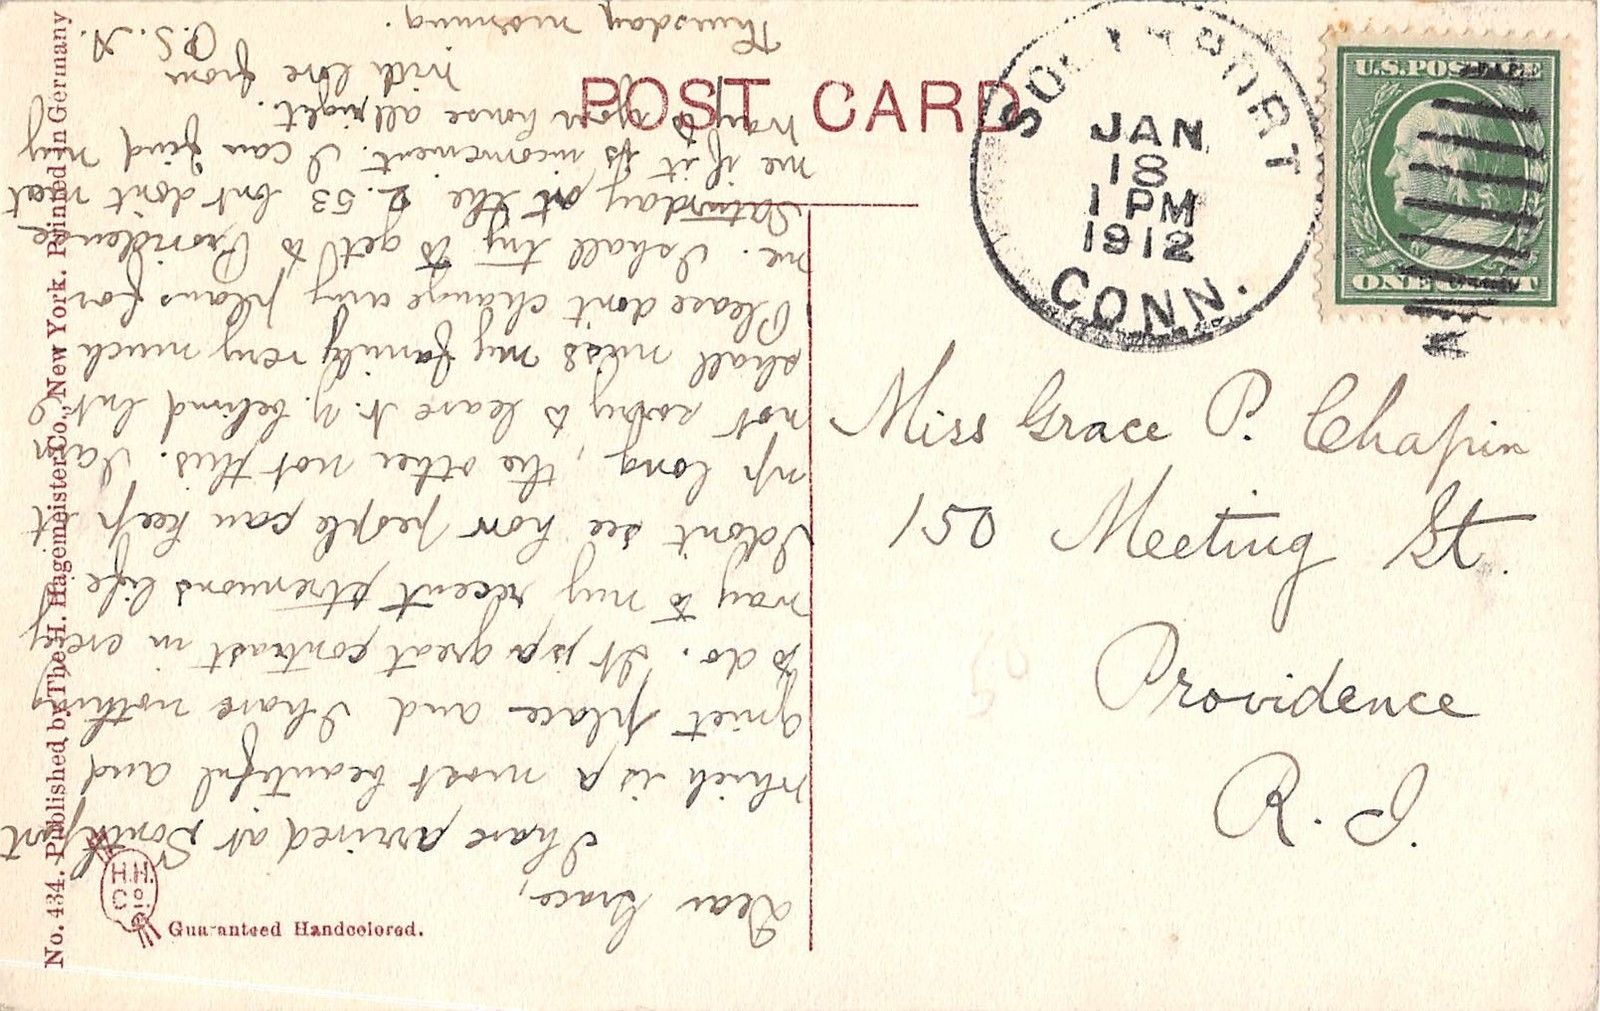 POST CARD
SOUTHPORT
JAN
18
1 PM
1912
CONN.
U.S. POSTAGE
ONE CENT
Miss Grace P. Chapin
150 Meeting St.
Providence
R. I.
Dear Grace,
I have arrived at Southport
which is a most beautiful and
quiet place and I have nothing
to do. It is a great contrast in every
way to my recent strenuous life
I don't see how people can keep it
up long, the other not this. I am
not sorry to leave N. Y. behind but I
shall miss my family very much
Please don't change any plans for
me. I shall try to get to Providence
Saturday at the 2.53 but don't meet
me if it is inconvenient. I can find my
way to your house all right.
With love from
P.S.N.
Thursday morning.
No. 434. Published by The H. Hagemeister Co., New York. Printed in Germany
H.H.
Co.
Guaranteed Handcolored.